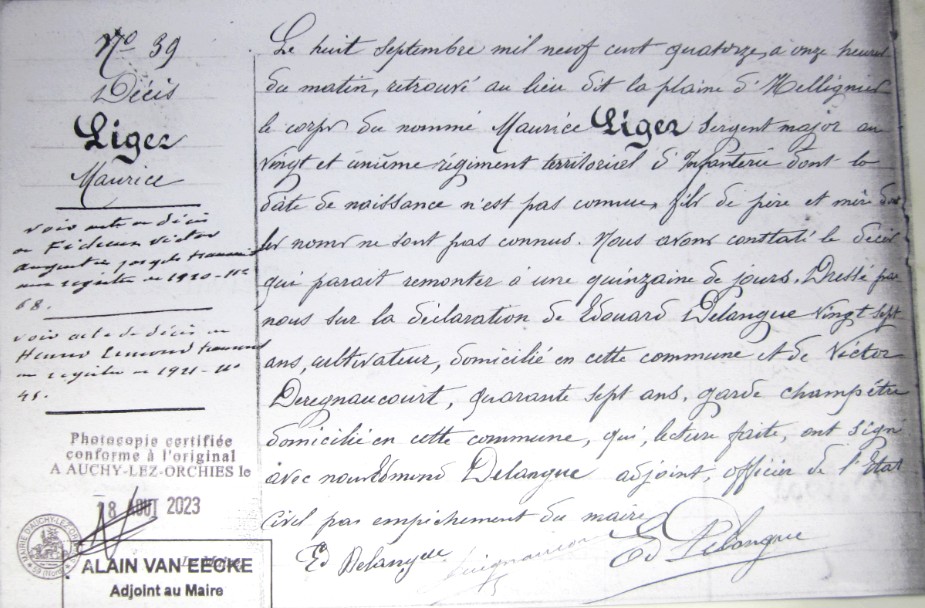 No 39
Décès
Liger
Maurice
voir acte de décès
de
Victor
transcrit
registre de 1920 - No
68.
voir acte de décès de
Henno transcrit
registre de 1921 - No
45.
Photocopie certifiée
conforme à l'original
A AUCHY-LEZ-ORCHIES le
18 AOUT 2023
ALAIN VAN EECKE
Adjoint au Maire
Le huit septembre mil neuf cent quatorze, à onze heures
du matin, retrouvé au lieu dit la plaine d'
le corps du nommé Maurice Liger sergent major au
vingt et unième régiment territorial d'Infanterie dont la
date de naissance n'est pas connue, fils de père et mère dont
les noms ne sont pas connus. Nous avons constaté le décès
qui parait remonter à une quinzaine de jours. Dressé par
nous sur la déclaration de Edouard Delangue vingt sept
ans, cultivateur, domicilié en cette commune et de Victor
Deregnaucourt, quarante sept ans, garde champêtre
domicilié en cette commune, qui, lecture faite, ont signé
avec nous Edmond Delangue adjoint, officier de l'Etat
civil par empêchement du maire
Ed Delangue Ed Delangue